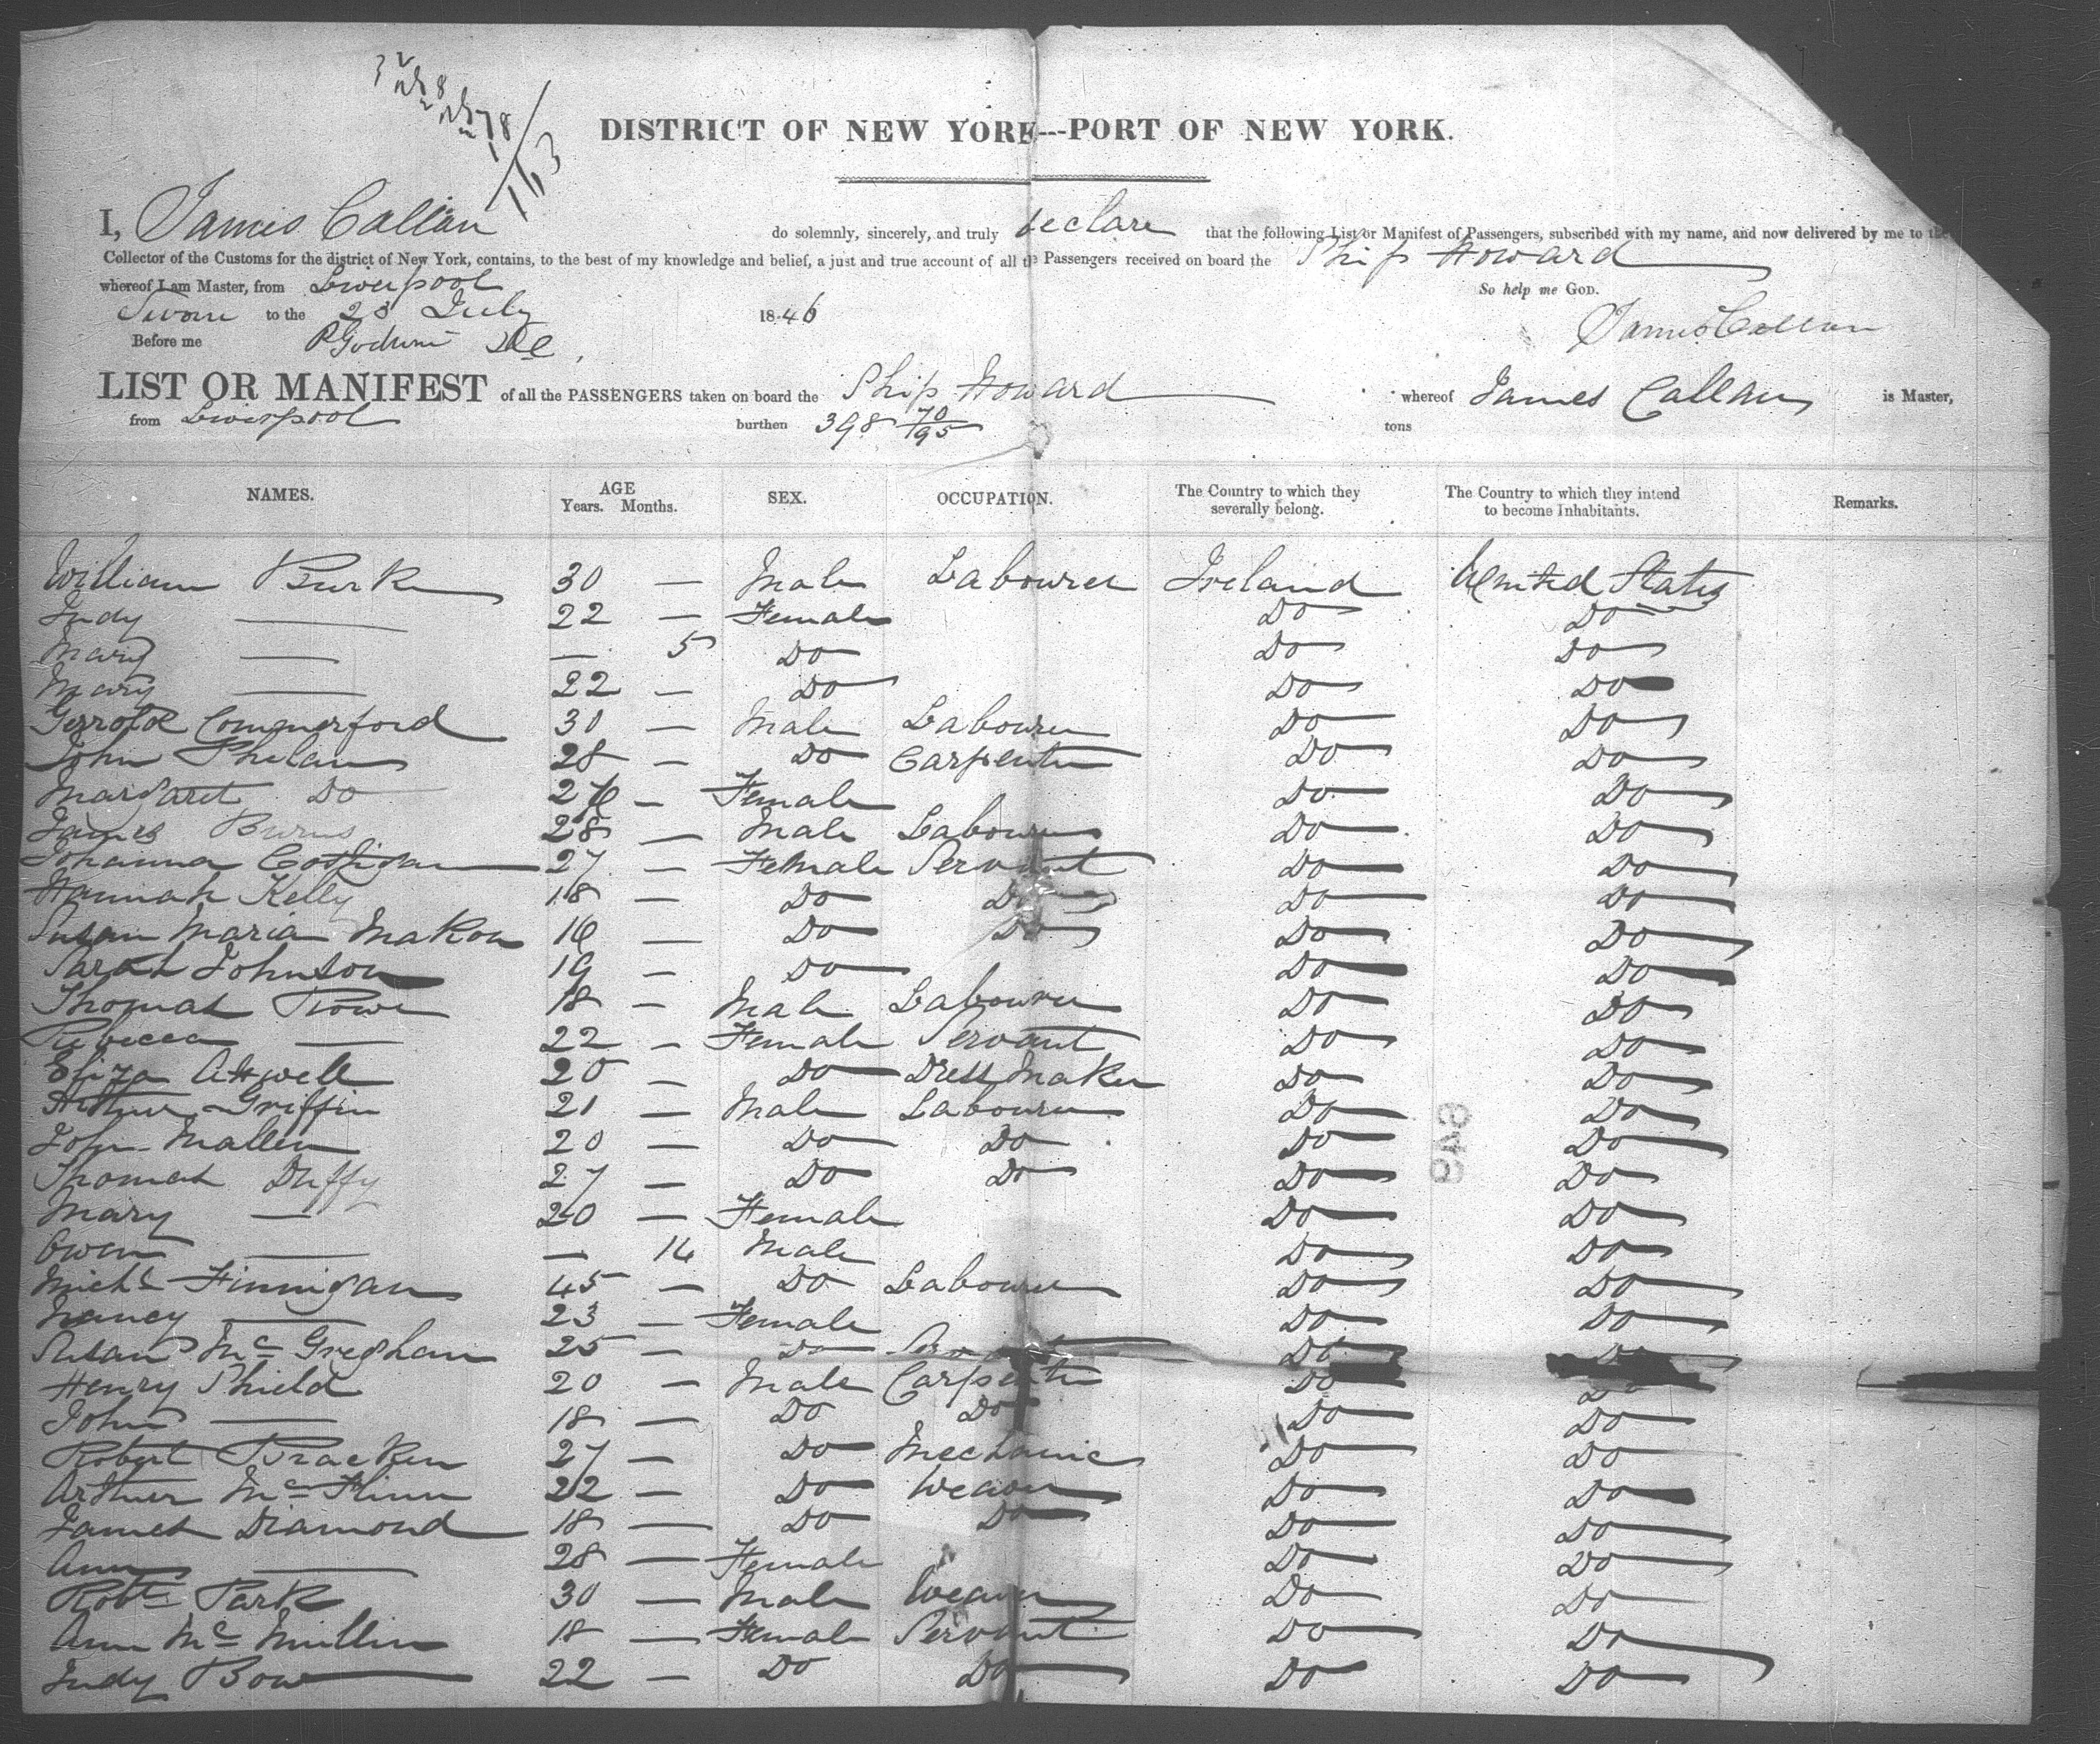 DISTRICT OF NEW YORK---PORT OF NEW YORK.
163
I, James Callan do solemnly, sincerely, and truly declare that the following List or Manifest of Passengers, subscribed with my name, and now delivered by me to the
Collector of the Customs for the district of New York, contains, to the best of my knowledge and belief, a just and true account of all the Passengers received on board the Ship Howard
whereof I am Master, from Liverpool So help me GOD.
Sworn to the 23 July 1846 James Callan
Before me
LIST OR MANIFEST of all the PASSENGERS taken on board the Ship Howard whereof James Callan is Master,
from Liverpool burthen 398 70/95 tons
NAMES. AGE Years. Months. SEX. OCCUPATION. The Country to which they severally belong. The Country to which they intend to become Inhabitants. Remarks.
William Burk 30 — Male Labourer Ireland United States
Judy — 22 — Female Do Do
Mary — — 5 Do Do Do
Mary — 22 — Do Do Do
Gerrold Commerford 30 — Male Labourer Do Do
John Phelan 28 — Do Carpenter Do Do
Margaret Do 26 — Female Do Do
James Burns 28 — Male Labourer Do Do
Johanna Costigan 27 — Female Servant Do Do
Hannah Kelly 18 — Do Do Do Do
Susan Maria Makon 16 — Do Do Do Do
Sarah Johnson 19 — Do Do Do
Thomas Rowe 18 — Male Labourer Do Do
Rebecca — 22 — Female Servant Do Do
Eliza Attwell 20 — Do Dress Maker Do Do
Arthur Griffin 21 — Male Labourer Do Do
John Mallen 20 — Do Do Do Do
Thomas Duffy 27 — Do Do Do Do
Mary — 20 — Female Do Do
Owen — — 14 Male Do Do
Michl Finnigan 45 — Do Labourer Do Do
Nancy — 23 — Female Do Do
Susan Mc Greghan 25 — Do Servant Do Do
Henry Shield 20 — Male Carpenter Do Do
John — 18 — Do Do Do Do
Robert Bracken 27 — Do Mechanic Do Do
Arthur Mc Flinn 22 — Do Weaver Do Do
James Diamond 18 — Do Do Do Do
Ann — 28 — Female Do Do
Robt Park 30 — Male Weaver Do Do
Ann Mc Mullin 18 — Female Servant Do Do
Judy Bow 22 — Do Do Do Do